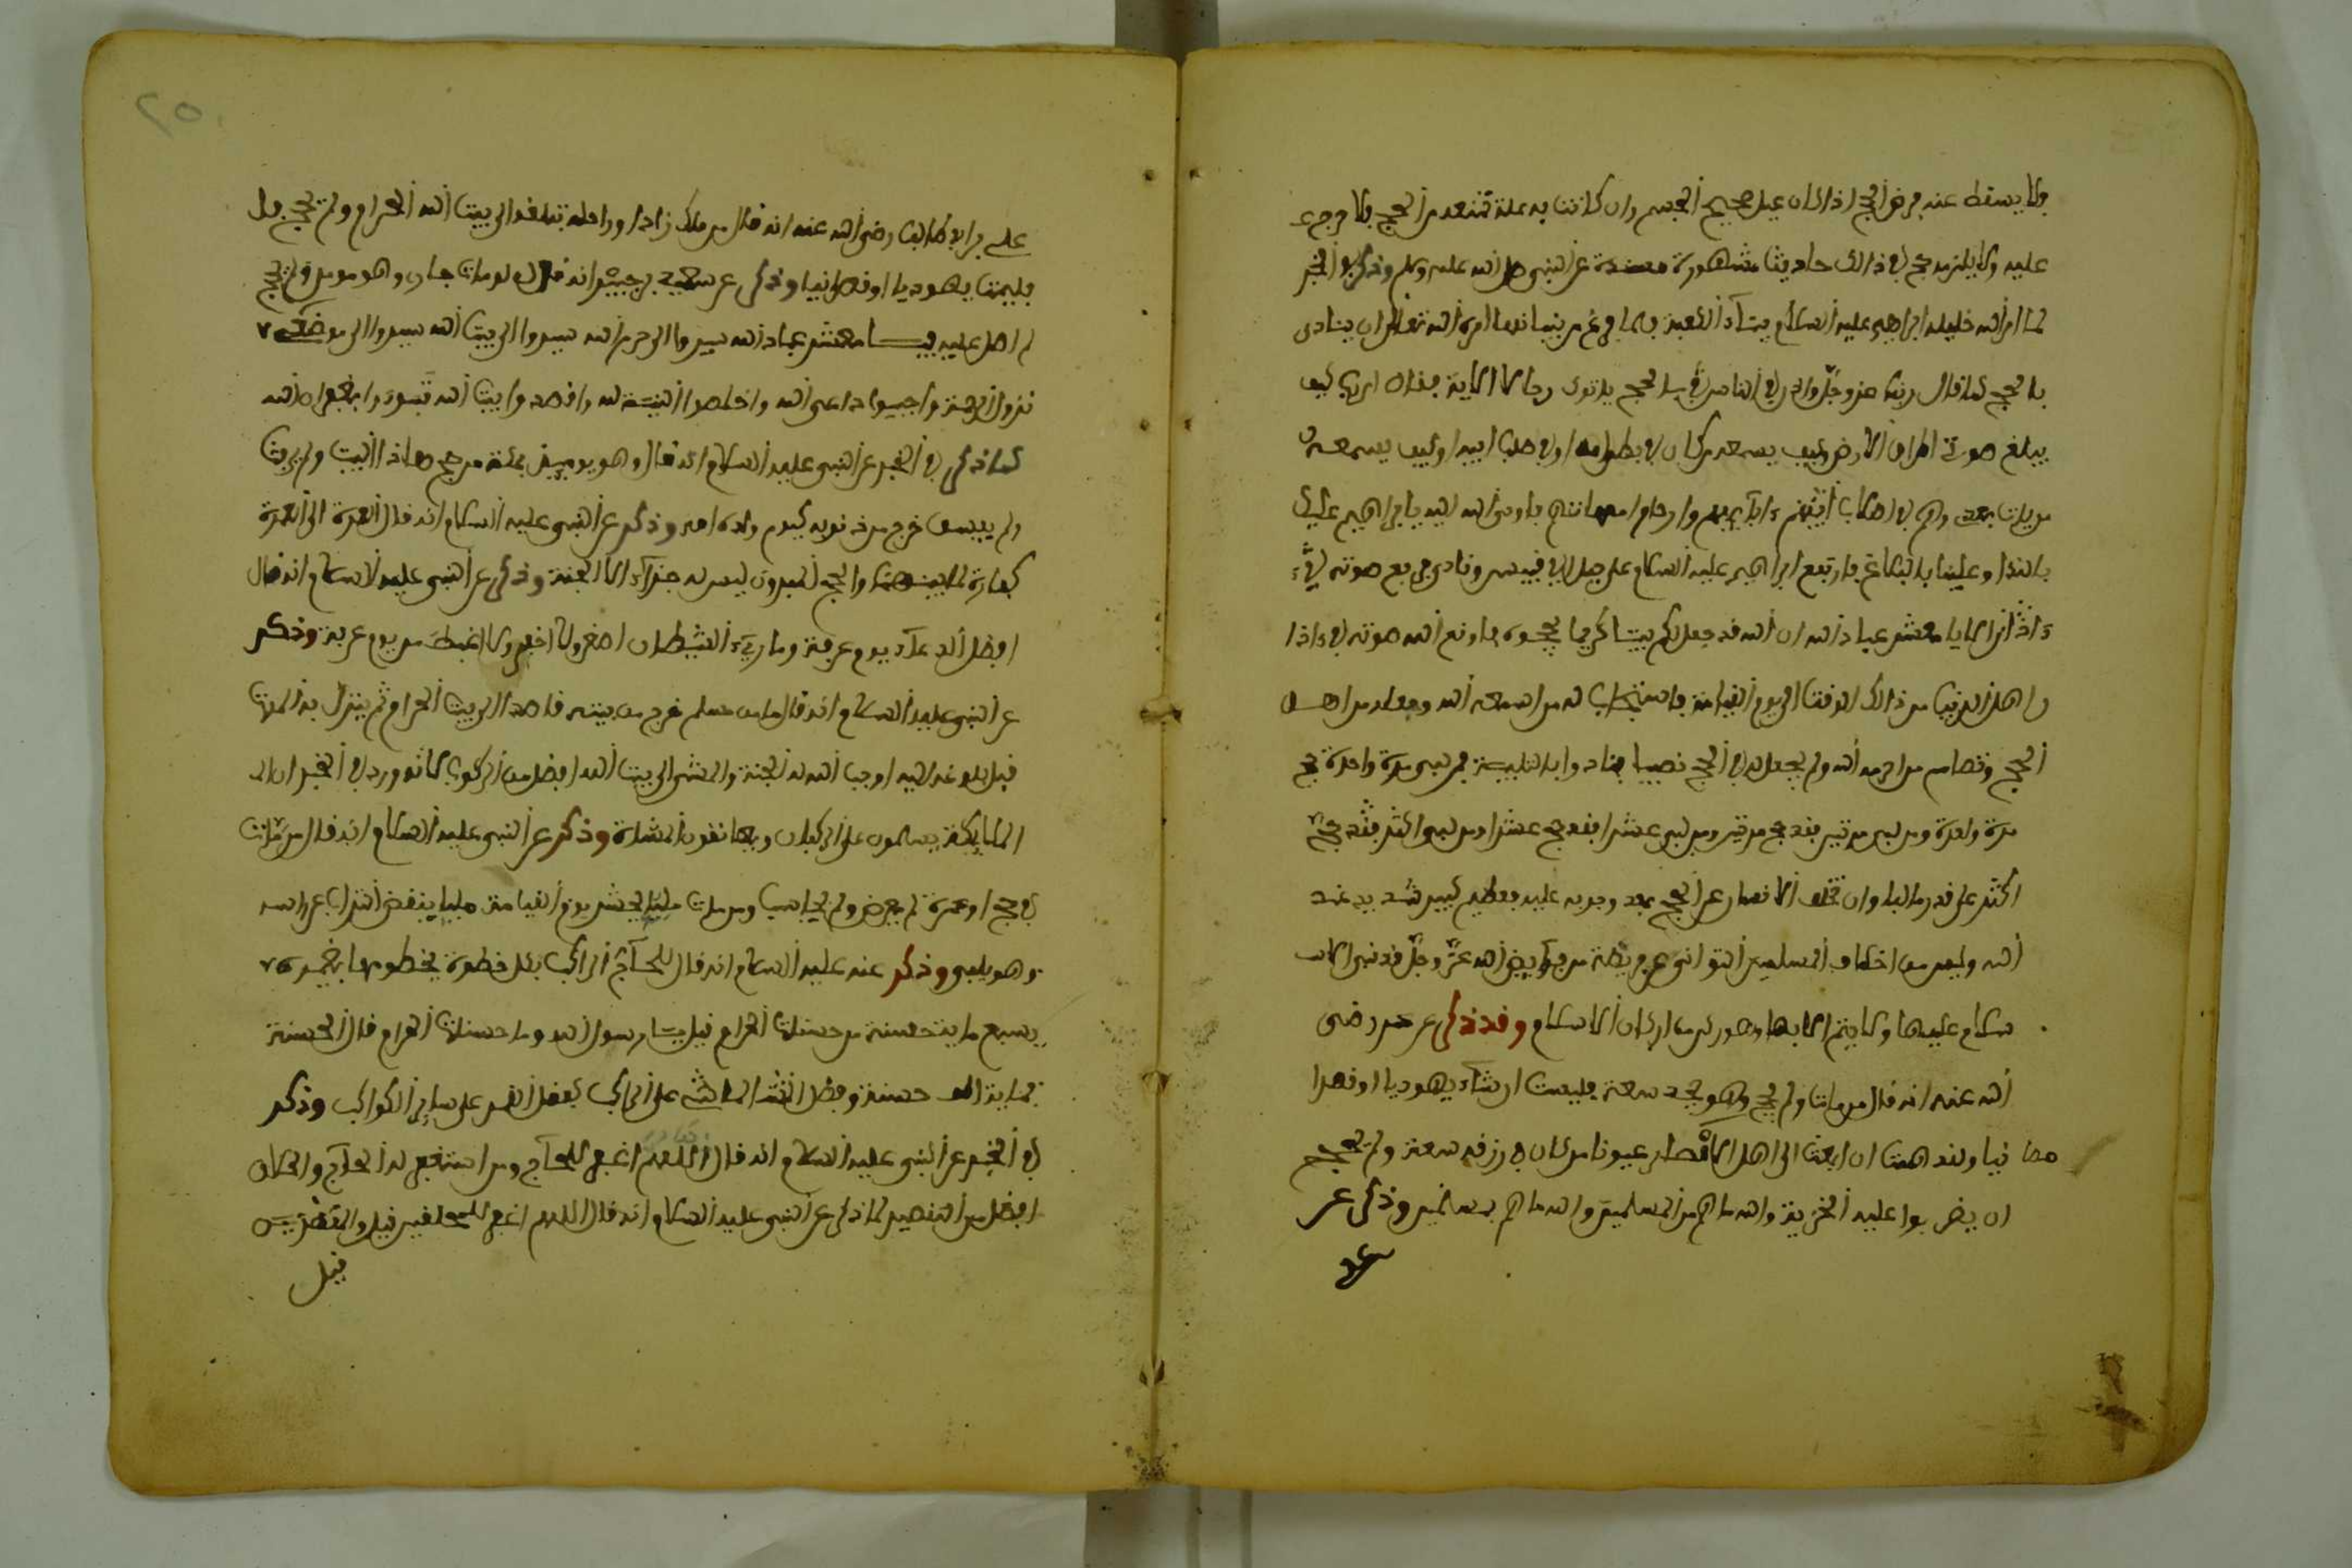 ولا يسقط عنه فرض الحج اذا كان صحيح الجسم وان كانت به علة تمنعه من الحج فلا حرج
عليه ولا يلزمه حج في ذالك حاديث مشهورة عن النبي صلى الله عليه وسلم وذكر في الخبر
لما امر الله خليله ابراهيم عليه السلام ببناء الكعبة فلما فرغ من بنيانها امره الله تعالى ان ينادي
بالحج كما قال ربنا عز وجل واذن في الناس بالحج ياتوك رجالا الاية فقال اي رب كيف
يبلغ صوتي اطراف الارض وكيف يسمعه من كان في بطن امه او في صلب ابيه او كيف يسمعه
من يات بعد وهم في اصلاب ابائهم وارحام امهاتهم فاوحى الله اليه يا ابراهيم عليك
بالندا وعلينا بالبلاغ فارتفع ابراهيم عليه السلام على جبل ابي قبيس ونادى فرفع صوته
الا يا معشر عباد الله ان الله قد جعل لكم بيتا كريما فحجوه فاوقع الله صوته في اذا
ن اهل الدنيا من ذالك الوقت الى يوم القيامة فاستجاب له من اسمعه الله وجعله من اهل
الحج وتصامم من احرمه الله ولم يجعل له في الحج نصيبا فنادوا بالتلبية فمن لبى مرة واحدة حج
مرة واحدة ومن لبى مرتين فقد حج مرتين ومن لبى عشرا فقد حج عشرا ومن لبى اكثر فقد حج
اكثر على قدر ما لبا وان تخلف الانسان عن الحج بعد وجوبه عليه فعظيم كبير شديد عند
الله وليس من اخلاف المسلمين التواني عن فريضة من فرآيض الله عز وجل قد بني الا
سلام عليها ولا يتم الا بها وهو ركن من اركان الاسلام وقد ذكر عن عمر رضي
الله عنه انه قال من مات ولم يحج وهو يجد سعة فليمت ان شآء يهوديا او نصرا
نيا ولقد هممت ان ابعث الى اهل الامصار عيونا من كان في رزقه سعة ولم يحج
ان يضربوا عليه الجزية والله ما هم من المسلمين والله ما هم بمسلمين وذكر عن
على بن ابي طالب رضي الله عنه انه قال من ملك زادا وراحلة تبلغه الى بيت الله الحرام ولم يحج
فليمت يهوديا او نصرانيا وذكر عن سعيد بن جبير انه قال لو مات جار وهو موسر ولم يحج
لم اصل عليه يا معشر عباد الله سيروا الى حرم الله سيروا الى بيت الله سيروا الى موضع
نزول الرحمة واجيبوا داعي الله واخلصوا النية له واقصدوا بيت الله
كما ذكر في الخبر عن النبي عليه السلام انه قال وهو يوميذ بمكة من حج هاذا البيت ولم يرفث
ولم يفسق خرج من ذنوبه كيوم ولدته امه وذكر عن النبي عليه السلام انه قال العمرة الى العمرة
كفارة لما بينهما والحج المبرور ليس له جزآء الا الجنة وذكر عن النبي عليه السلام انه قال
افضل الدعآء يوم عرفة وما ريء الشيطان اصغر ولا احقر ولا اغيظ من يوم عرفة وذكر
عن النبي عليه السلام انه قال ما من مسلم خرج من بيته قاصدا الى بيت الله الحرام ثم ينزل به الموت
قبل بلوغه اليه اوجب الله له الجنة والمشي الى بيت الله افضل من الركوب لانه ورد في الخبر ان
الملايكة يسلمون على الركبان ويعانقون المشاة وذكر عن النبي عليه السلام انه قال من مات
في حج او عمرة لم يعرض ولم يحاسب ومن مات ملبيا يحشر يوم القيامة ملبيا ينفض التراب عن راسه
وهو يلبي وذكر عنه عليه السلام انه قال للحآج الراكب بكل خطوة يخطوها بعيره
سبع ماية حسنة من حسنات الحرام قيل يا رسول الله وما حسنات الحرام قال الحسنة
بماية الف حسنة وفضل الماشي على الراكب كفضل القمر على ساير الكواكب وذكر
في الخبر عن النبي عليه السلام انه قال اللهم اغفر للحآج ومن استغفر له الحآج والحلاق
افضل من التقصير لما ذكر عن النبي عليه السلام انه قال اللهم اغفر للمحلقين قيل والمقصرين
قيل